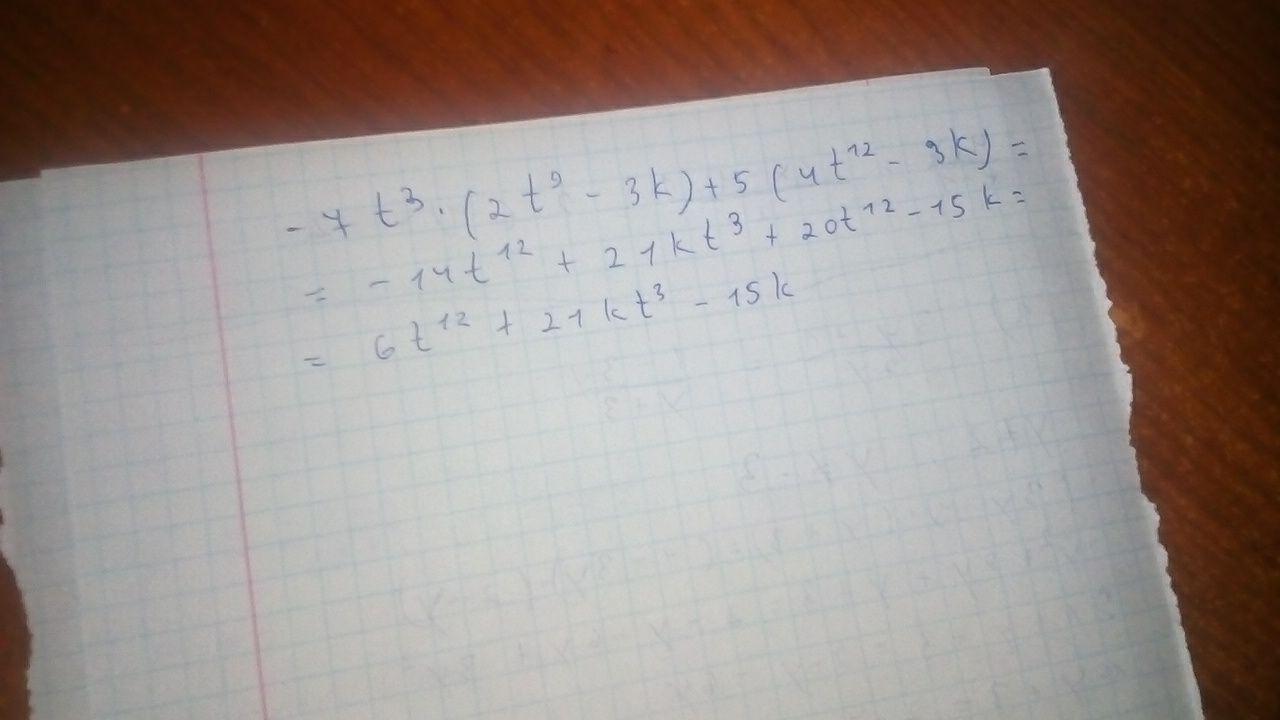 - 7 t³ · (2 t⁹ - 3k) + 5 (4t¹² - 3k) =
= - 14t¹² + 21kt³ + 20t¹² - 15k =
= 6t¹² + 21kt³ - 15k